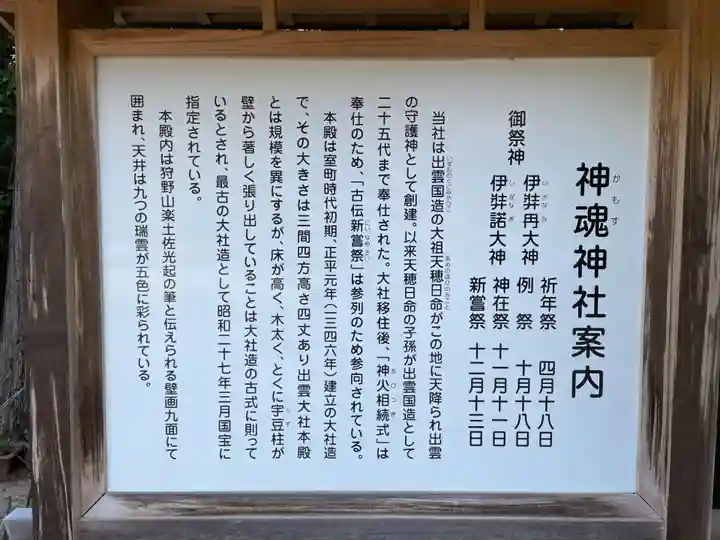 神魂神社案内
かもす
御祭神
伊弉冉大神
いざなみ
伊弉諾大神
いざなぎ
祈年祭 四月十八日
例祭 十月十八日
神在祭 十一月十一日
新嘗祭 十二月十三日
当社は出雲国造の大祖天穂日命がこの地に天降られ出雲
の守護神として創建。以来天穂日命の子孫が出雲国造として
二十五代まで奉仕された。大社移住後、「神火相続式」は
奉仕のため、「古伝新嘗祭」は参列のため参向されている。
本殿は室町時代初期、正平元年(一三四六年)建立の大社造
で、その大きさは三間四方高さ四丈あり出雲大社本殿
とは規模を異にするが、床が高く、木太く、とくに宇豆柱が
壁から著しく張り出していることは大社造の古式に則って
いるとされ、最古の大社造として昭和二十七年三月国宝に
指定されている。
本殿内は狩野山楽土佐光起の筆と伝えられる壁画九面にて
囲まれ、天井は九つの瑞雲が五色に彩られている。